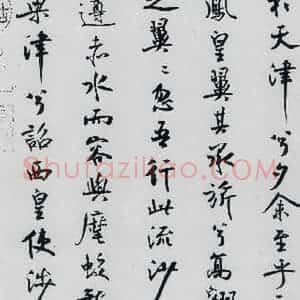 於天津兮夕余至乎
鳳皇翼其承旂兮高翱
之翼〻忽吾行此流沙
遵赤水而容與麾蛟
梁津兮詔西皇使涉
Shufaziliao.com